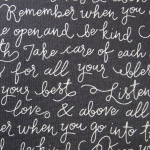 Remember when you
be open, and be kind
th Take care of each
for all your bles
your best Listen
love & above all
er when you go into t